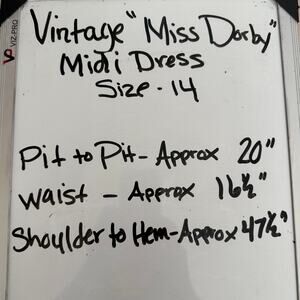 VIZ-PRO
Vintage "Miss Dorby"
Midi Dress
Size - 14
Pit to Pit - Approx 20"
waist - Approx 16½"
Shoulder to Hem - Approx 47½"